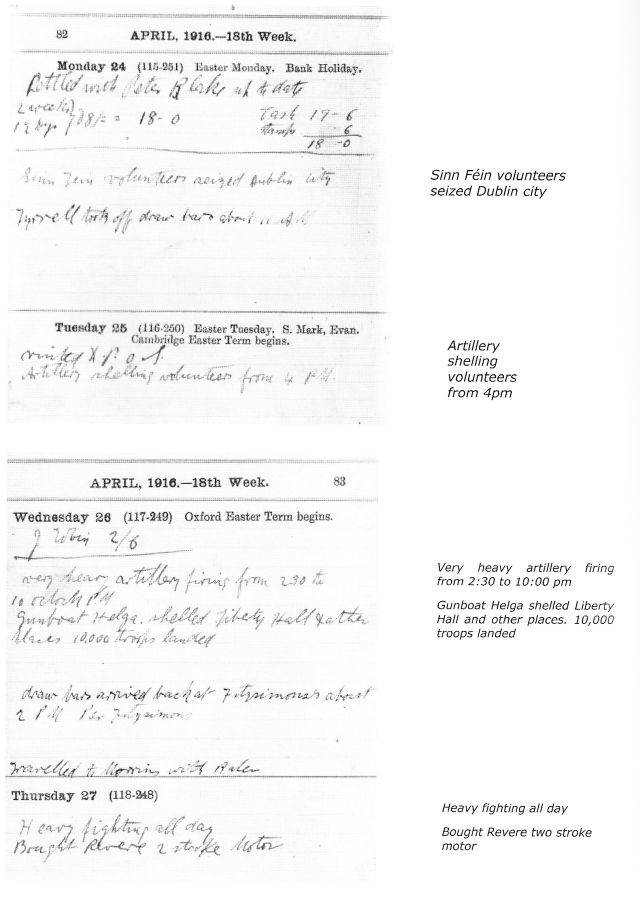 82 APRIL, 1916.—18th Week.
Monday 24 (115-251) Easter Monday. Bank Holiday.
Settled with Peter Blake up to date
2 weeks
12 Days 18-0 Cash 17-6
Stamps 6
18-0
Sinn Fein volunteers seized Dublin City
Tyrrell took off draw bars about 11 AM
Tuesday 25 (116-250) Easter Tuesday. S. Mark, Evan.
Cambridge Easter Term begins.
Artillery shelling volunteers from 4 PM.
Sinn Féin volunteers
seized Dublin city
Artillery
shelling
volunteers
from 4pm
APRIL, 1916.—18th Week. 83
Wednesday 26 (117-249) Oxford Easter Term begins.
J 2/6
very heavy artillery firing from 2 30 to
10 oclock PM
Gunboat Helga. shelled Liberty Hall & other
places 10,000 troops landed
draw bars arrived back at Fitzsimons's about
2 PM Per Fitzsimons
Travelled to with
Thursday 27 (118-248)
Heavy fighting all day
Bought Revere 2 stroke Motor
Very heavy artillery firing
from 2:30 to 10:00 pm
Gunboat Helga shelled Liberty
Hall and other places. 10,000
troops landed
Heavy fighting all day
Bought Revere two stroke
motor